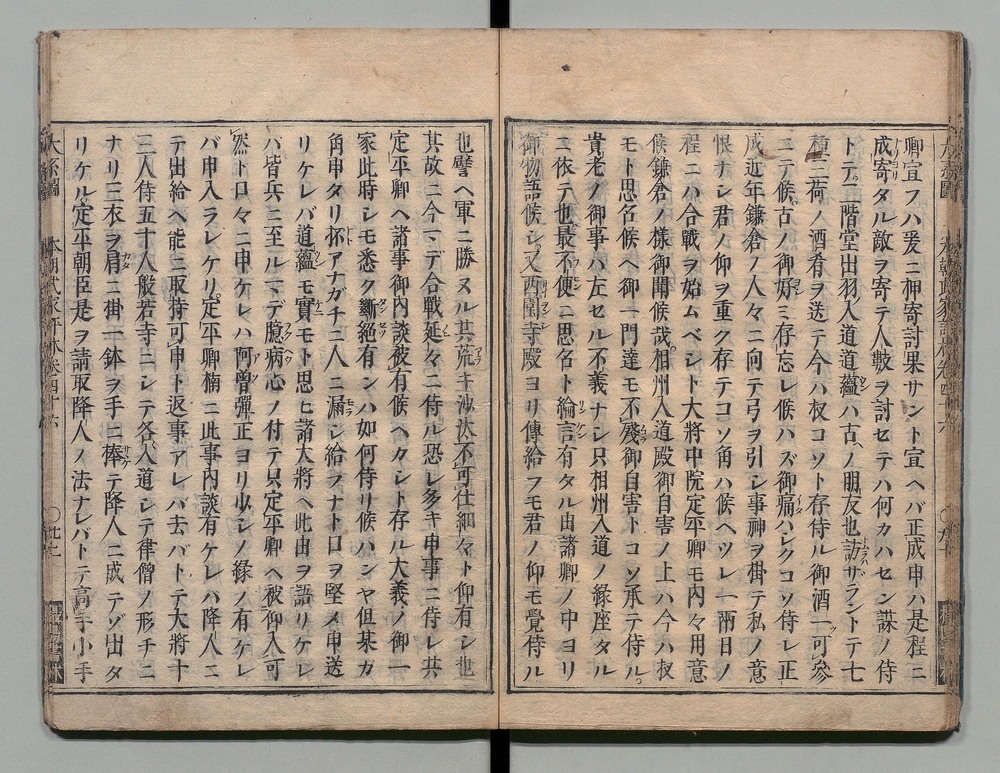 卿宣フハ爰ニ押寄討果サント宣ヘバ正成申ハ是程ニ
成寄タル敵ヲ寄テ人數ヲ討セテハ何カハセン謀ノ侍
トテ二階堂出羽入道道蘊ハ古ヘノ朋友也訪サラントテ七
種三荷ノ酒肴ヲ送テ今ハ杈コソト存侍ル御酒一可參
ニテ候古ノ御好ミ存忘レ候ハズ御痛ハシクコソ侍レ正
成近年鎌倉ノ人々ニ向テ弓ヲ引シ事神ヲ掛テ私ノ意
恨ナシ君ノ仰ヲ重ク存テコソ角ハ候ヘツレ一兩日ノ
程ニハ合戰ヲ始ムベシト大將中院定平卿モ内々用意
候鎌倉ノ樣御聞候哉相州入道殿御自害ノ上ハ今ハ杈
モト思名候ヘ御一門達モ不殘御自害トコソ承テ侍ル
貴老ノ御事ハ左セル不義ナシ只相州入道ノ縁座タル
ニ依テ也最不便ニ思名ト綸言有タル由諸卿ノ中ヨリ
御物語候シ又西園寺殿ヨリ傳給フモ君ノ仰モ覺侍ル
也譬ヘ軍ニ勝ヌル共荒キ沙汰不可仕細々ト仰有シ也
其故ニ今マデ合戰延々ニ侍ル恐レ多キ申事ニ侍レ共
定平卿ヘ諸事御内談被有候ヘカシト存ル大義ノ御一
家此時シモ悉ク斷絶有ンハ如何侍リ候ハンヤ但某ガ
角申タリ抔アナガチ二人ニ漏シ給フナト口ヲ堅メ申送
リケレバ道蘊モ實モト思ヒ諸大將ヘ此由ヲ語リケレ
バ皆兵ニ至ルマデ臆病心ノ付テ只定平卿ヘ被仰入可
然ト口々ニ申ケレハ阿曾彈正ヨリ少シノ縁ノ有ケレ
バ申入ラレケリ定平卿楠ニ此事内談有ケレハ降人ニ
テ出給ヘ能ニ取持可申ト返事アレバ去バトテ大將十
三人侍五十人般若寺ニシテ各入道シテ律僧ノ形チニ
ナリ三衣ヲ肩ニ掛一鉢ヲ手ニ捧テ降人ニ成テゾ出タ
リケル定平朝臣是ヲ請取降人ノ法ナレバトテ高手小手